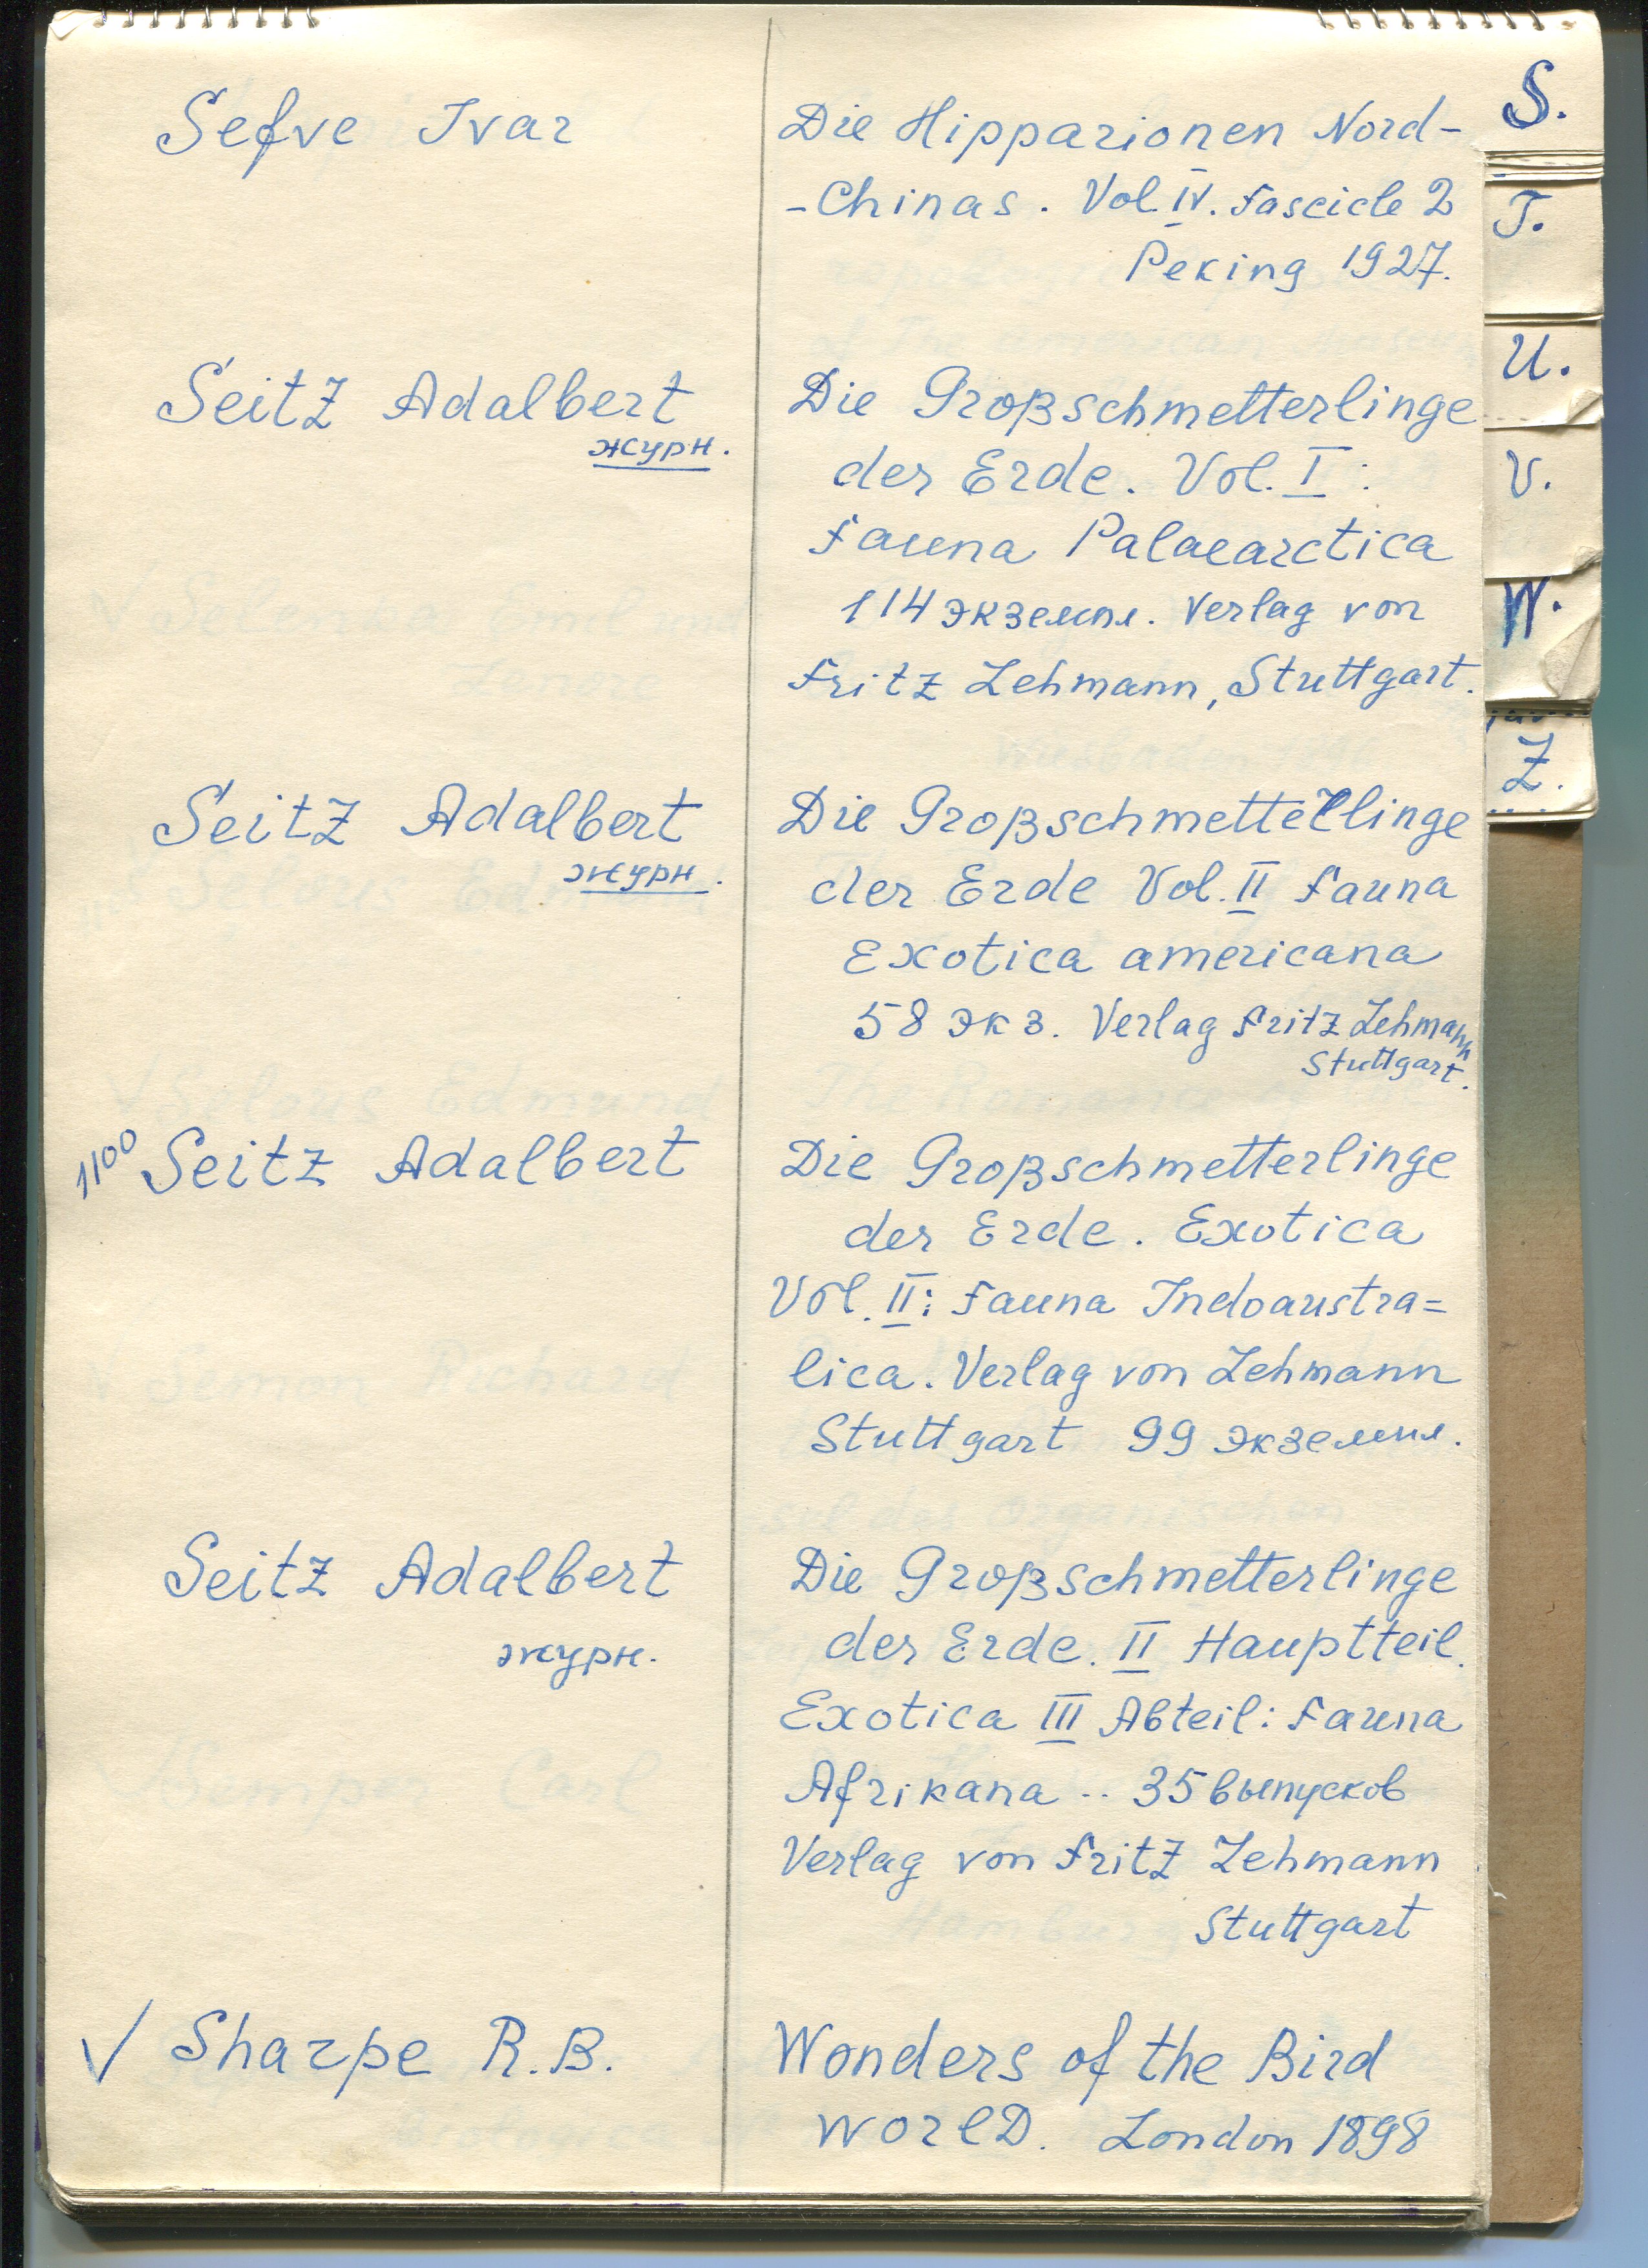 Sefve Ivar
Die Hipparionen Nord-
-Chinas. Vol. IV. Fascicle 2
Peking 1927.
Seitz Adalbert
журн.
Die Großschmetterlinge
der Erde. Vol. I:
Fauna Palaearctica
114 экземпл. Verlag von
Fritz Lehmann, Stuttgart.
Seitz Adalbert
журн.
Die Großschmetterlinge
der Erde Vol. II Fauna
Exotica americana
58 экз. Verlag Fritz Lehmann
Stuttgart.
1100 Seitz Adalbert
Die Großschmetterlinge
der Erde. Exotica
Vol. II: Fauna Indoaustra=
lica. Verlag von Lehmann
Stuttgart 99 экземпл.
Seitz Adalbert
журн.
Die Großschmetterlinge
der Erde. II Hauptteil.
Exotica III Abteil: Fauna
Afrikana .. 35 выпусков
Verlag von Fritz Lehmann
Stuttgart
✓ Sharpe R.B.
Wonders of the Bird
WorlD. London 1898
S.
T.
U.
V.
W.
Z.